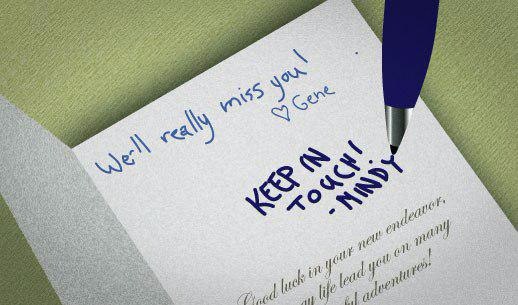 We'll really miss you!
♡ Gene
KEEP IN
TOUCH!
-MINDY
Good luck in your new endeavor,
life lead you on many
adventures!